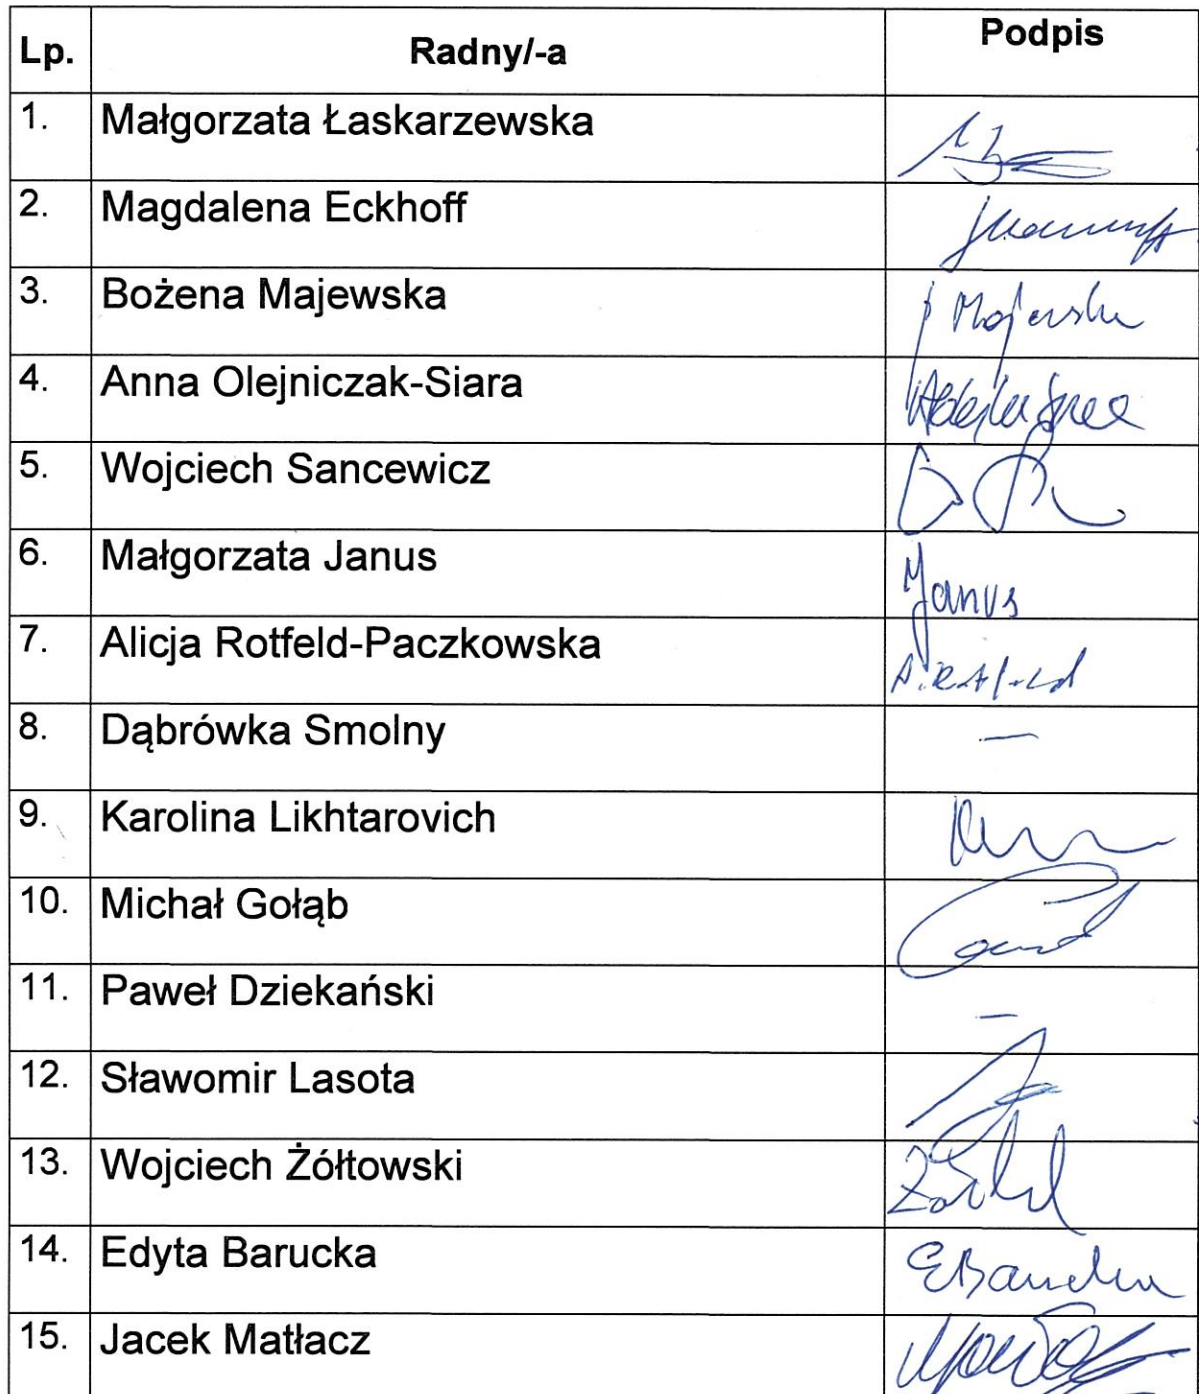 Lp. Radny/-a Podpis
1. Małgorzata Łaskarzewska
2. Magdalena Eckhoff
3. Bożena Majewska Majewska
4. Anna Olejniczak-Siara
5. Wojciech Sancewicz
6. Małgorzata Janus MJanus
7. Alicja Rotfeld-Paczkowska A.Rotfeld
8. Dąbrówka Smolny —
9. Karolina Likhtarovich
10. Michał Gołąb
11. Paweł Dziekański —
12. Sławomir Lasota
13. Wojciech Żółtowski
14. Edyta Barucka EBarucka
15. Jacek Matłacz